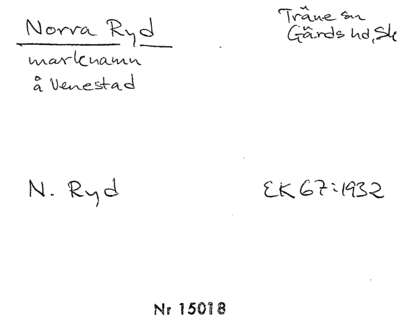 Norra Ryd
Träne sn
Gärds hd, Sk
marknamn
å Venestad
N. Ryd
EK 67:1932
Nr 15018